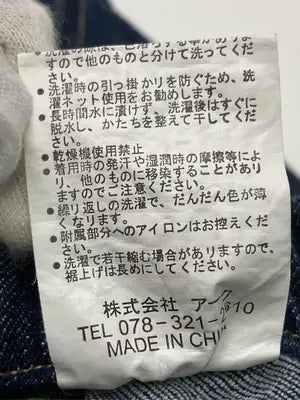 ●洗濯の際は、色落ちする事があり
ますので他のものと分けて洗ってくだ
さい。
●洗濯時の引っ掛かりを防ぐため、洗
濯ネット使用をお勧めします。
●長時間水に漬けず、洗濯後はすぐに
脱水し、かたちを整えて干してくださ
い。
●乾燥機使用禁止
●着用時の発汗や湿潤時の摩擦等によ
り、他のものに移染することがありま
すのでご注意ください。
●繰り返しの洗濯で、だんだん色が薄
くなります。
●附属部分へのアイロンはお控えくだ
さい。
●洗濯で若干縮む場合がありますので、
裾上げは長めにしてください。
株式会社
TEL 078-321-
MADE IN CHI